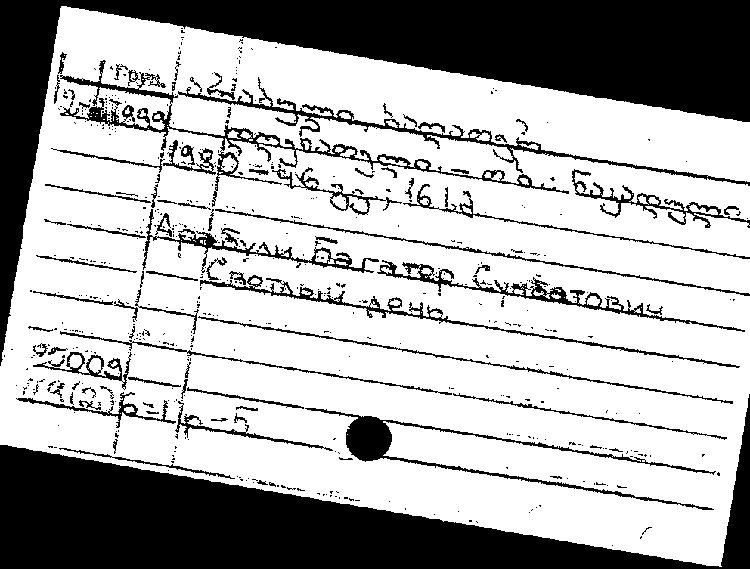 Груз.
არაბული, ბაღათერ
2- 1999
დღენათელი. – თბ.: ნაკადული,
1980 – 46 გვ; 16 სმ
Арабули, Багатер Сумбатович
Светлый день
95009
П9(2) б=1 р-5